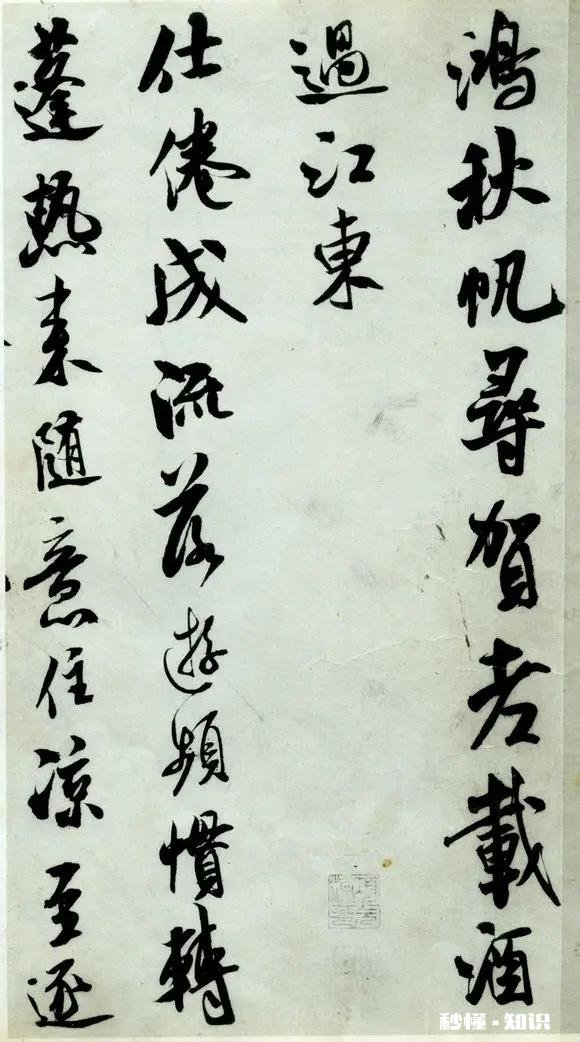 鴻秋帆尋賀老載酒
過江東
仕倦成流落遊頻慣轉
蓬熱来隨意住涼至逐
秒懂·知识